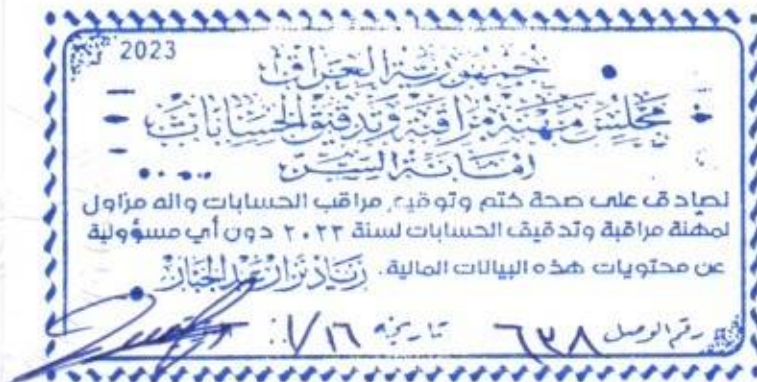 2023
جمهورية العراق
مجلس مهنة مراقبة وتدقيق الحسابات
امانة السر
نصادق على صحة ختم وتوقيع مراقب الحسابات وانه مزاول
لمهنة مراقبة وتدقيق الحسابات لسنة ٢٠٢٣ دون أي مسؤولية
عن محتويات هذه البيانات المالية. زياد نزار عبد الجبار
رقم الوصل ٦٣٨ تاريخه ١/١٦